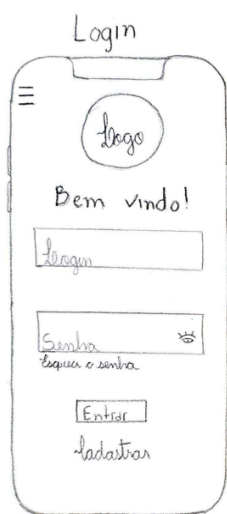 Login
Logo
Bem vindo!
Login
Senha
Esqueci a senha
Entrar
Cadastrar